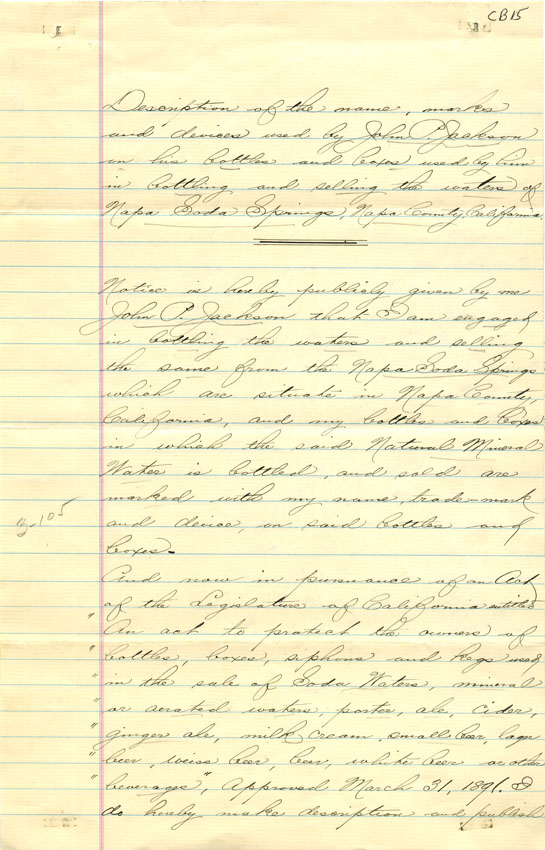 CB15
Description of the name, marks
and devices used by John P. Jackson
on his bottles and boxes used by him
in bottling and selling the waters of
Napa Soda Springs, Napa County, California
Notice is hereby publicly given by me
John P. Jackson that I am engaged
in bottling the waters and selling
the same from the Napa Soda Springs
which are situate in Napa County,
California, and my bottles and boxes
in which the said National Mineral
Water is bottled, and sold are
marked with my name, trade-mark
and device, on said bottles and
boxes.
3-105
And now in pursuance of an Act
of the Legislature of California entitled
" An act to protect the owners of
" bottles, boxes, siphons and kegs used
" in the sale of Soda Waters, mineral
" or aerated waters, porter, ale, cider,
" ginger ale, milk, cream, small beer, lager
" beer, weiss beer, beer, white beer or other
" beverages", Approved March 31, 1891. I
do hereby make description and publish